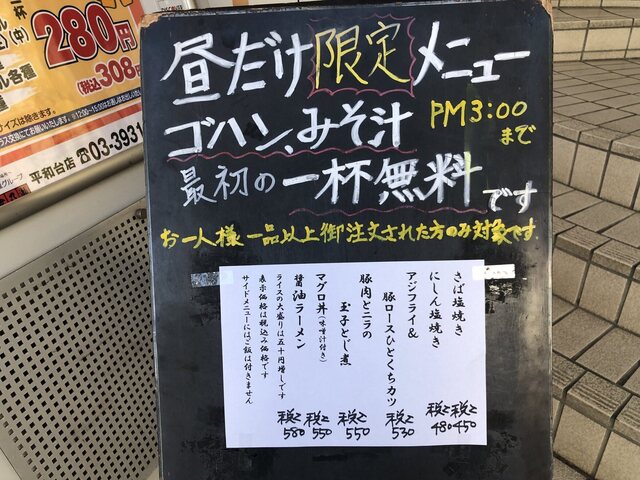 280円
(税込308円
平和台店 03-3931
昼だけ限定メニュー
ゴハン、みそ汁 PM3:00まで
最初の一杯無料です
お一人様一品以上御注文された方のみ対象です
さば塩焼き 税込450
にしん塩焼き 税込480
アジフライ&
豚ロースひとくちカツ 税込530
豚肉とニラの
玉子とじ煮 税込550
マグロ丼(味噌汁付き) 税込550
醤油ラーメン 税込580
ライスの大盛りは五十円増しです
表示価格は税込み価格です
サイドメニューにはご飯は付きません